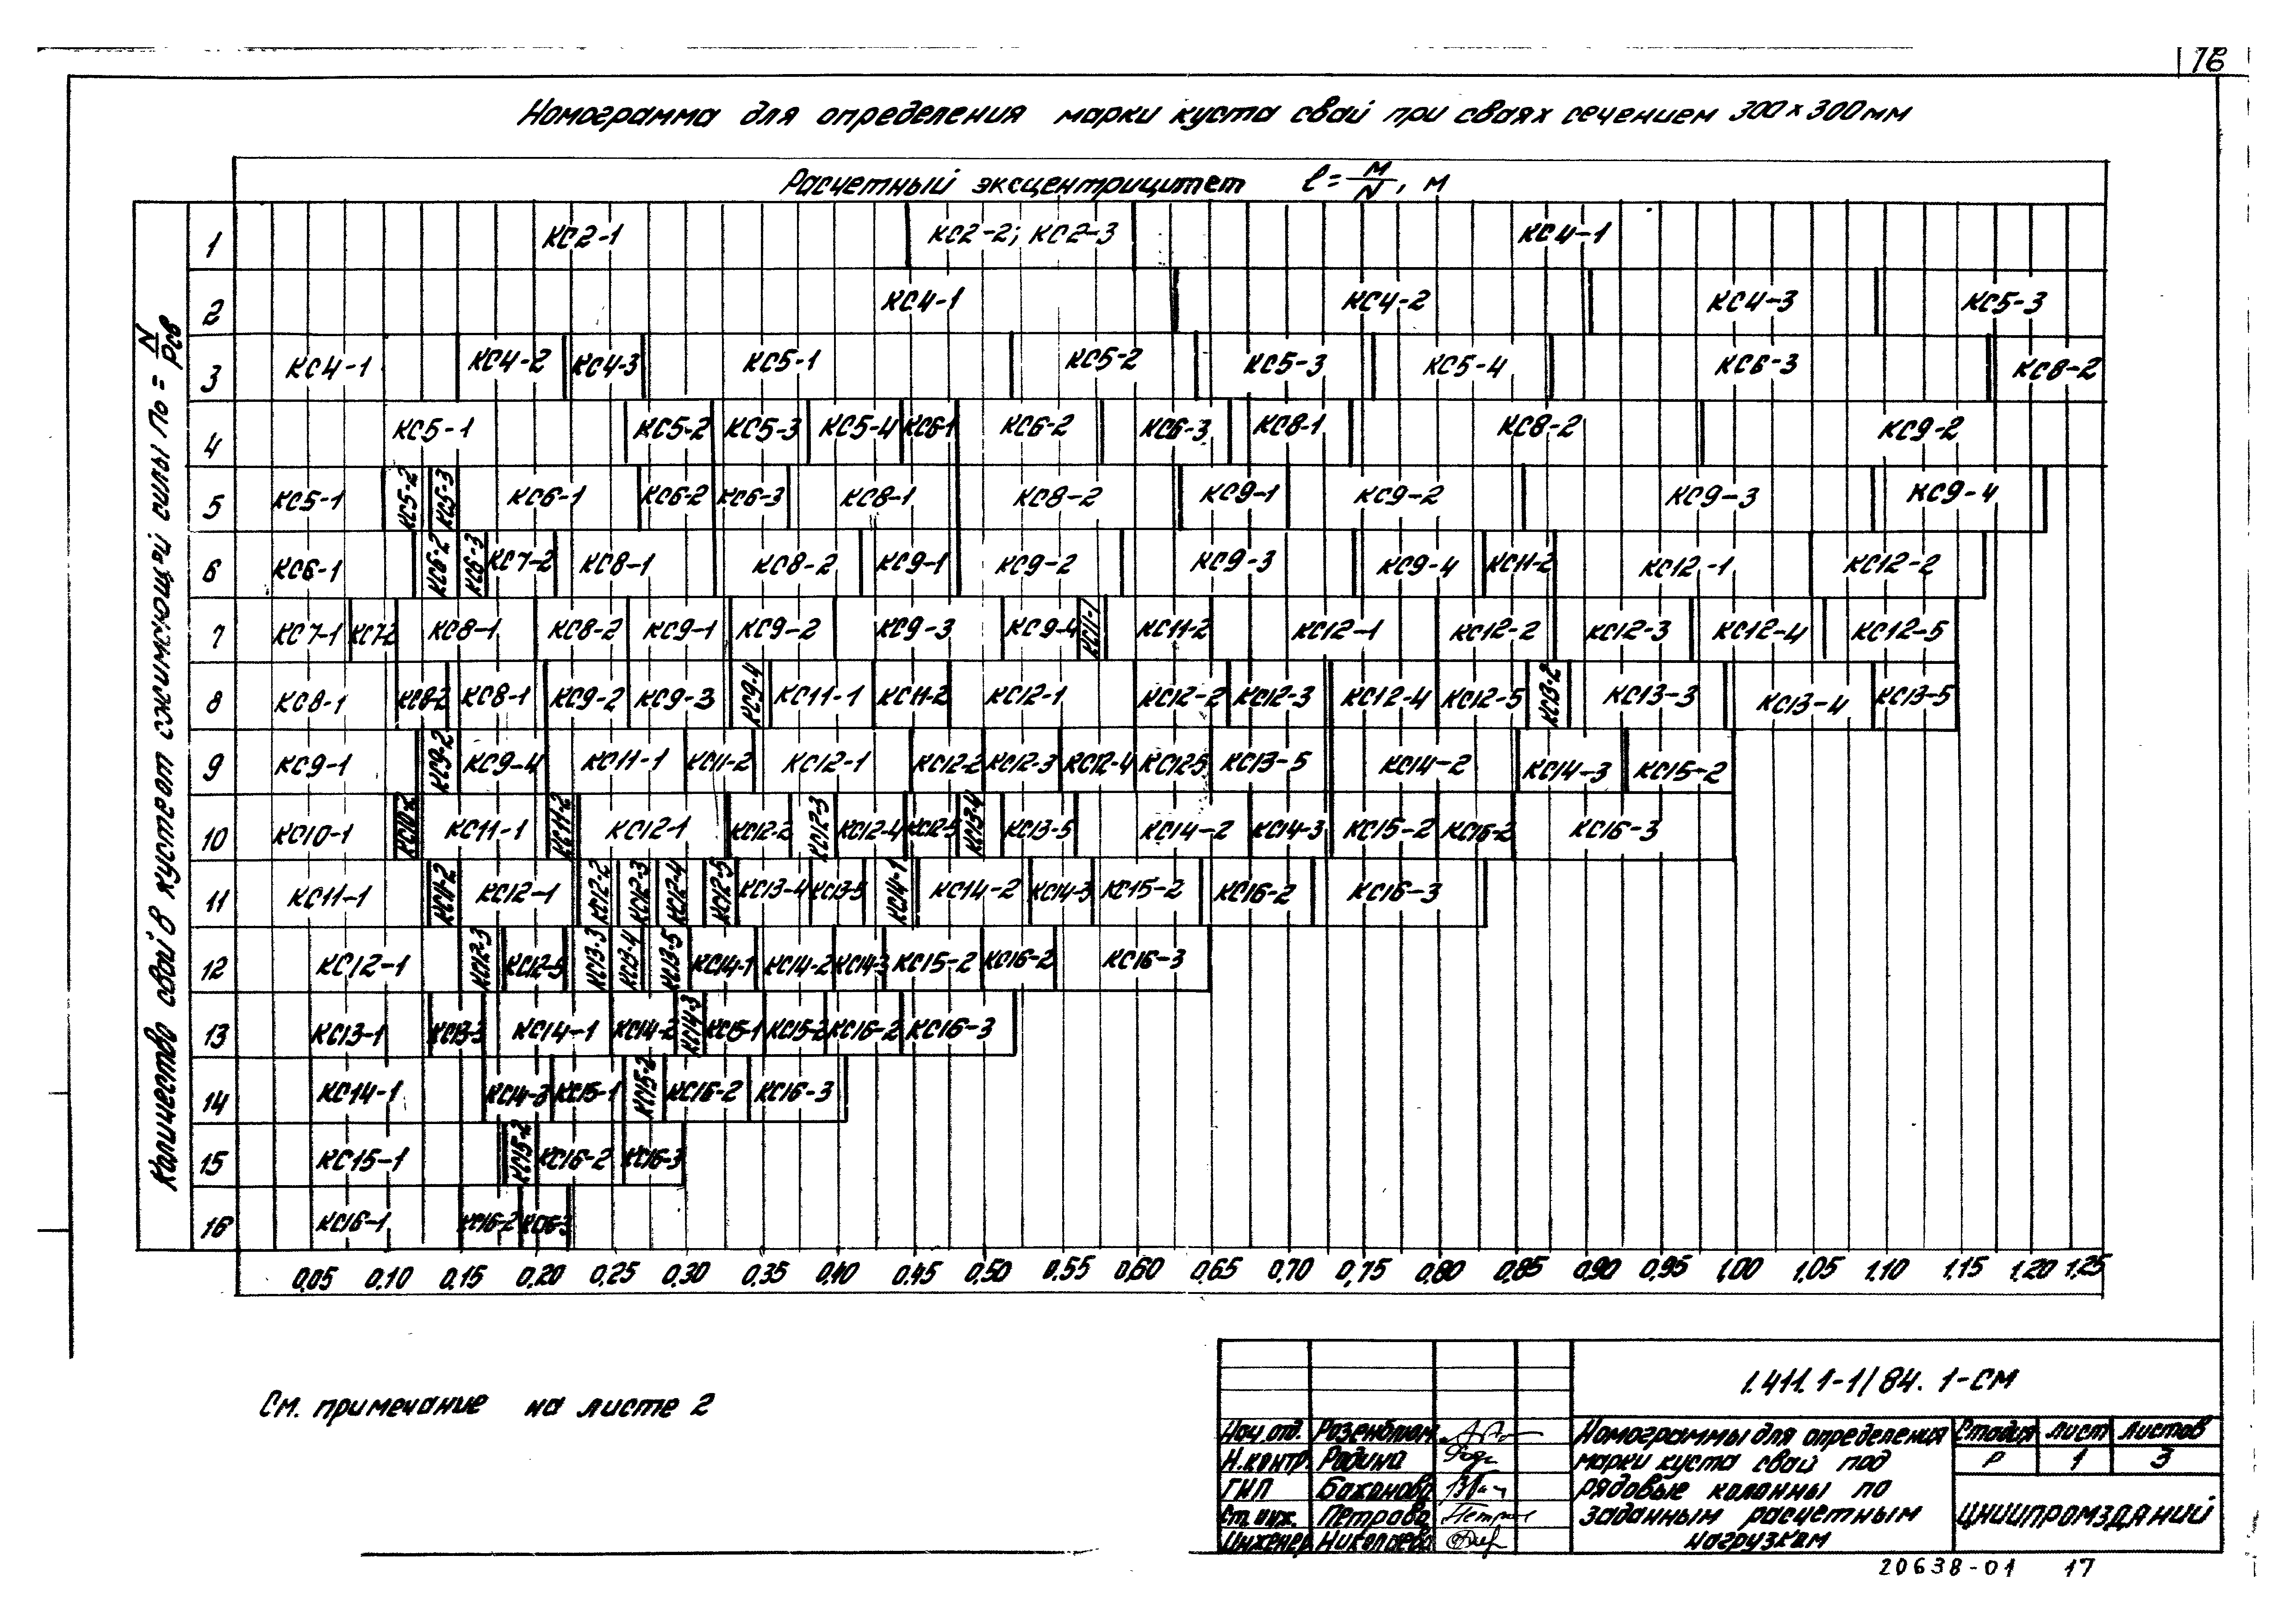 16
Номограмма для определения марки куста свай при сваях сечением 300×300мм
Расчетный эксцентрицитет e = M/N, м
Количество свай в кусте от сжимающей силы По = N/Pсв
1 КС2-1 КС2-2; КС2-3 КС4-1
2 КС4-1 КС4-2 КС4-3 КС5-3
3 КС4-1 КС4-2 КС4-3 КС5-1 КС5-2 КС5-3 КС5-4 КС6-3 КС8-2
4 КС5-1 КС5-2 КС5-3 КС5-4 КС6-1 КС6-2 КС6-3 КС8-1 КС8-2 КС9-2
5 КС5-1 КС5-2 КС5-3 КС6-1 КС6-2 КС6-3 КС8-1 КС8-2 КС9-1 КС9-2 КС9-3 КС9-4
6 КС6-1 КС6-2 КС6-3 КС7-2 КС8-1 КС8-2 КС9-1 КС9-2 КС9-3 КС9-4 КС11-2 КС12-1 КС12-2
7 КС7-1 КС7-2 КС8-1 КС8-2 КС9-1 КС9-2 КС9-3 КС9-4 КС11-1 КС11-2 КС12-1 КС12-2 КС12-3 КС12-4 КС12-5
8 КС8-1 КС8-2 КС8-1 КС9-2 КС9-3 КС9-4 КС11-1 КС11-2 КС12-1 КС12-2 КС12-3 КС12-4 КС12-5 КС13-2 КС13-3 КС13-4 КС13-5
9 КС9-1 КС9-2 КС9-4 КС11-1 КС11-2 КС12-1 КС12-2 КС12-3 КС12-4 КС12-5 КС13-5 КС14-2 КС14-3 КС15-2
10 КС10-1 КС10-2 КС11-1 КС11-2 КС12-1 КС12-2 КС12-3 КС12-4 КС12-5 КС13-4 КС13-5 КС14-2 КС14-3 КС15-2 КС16-2 КС16-3
11 КС11-1 КС11-2 КС12-1 КС12-2 КС12-3 КС12-4 КС12-5 КС13-4 КС13-5 КС14-1 КС14-2 КС14-3 КС15-2 КС16-2 КС16-3
12 КС12-1 КС12-3 КС12-5 КС13-3 КС13-4 КС13-5 КС14-1 КС14-2 КС14-3 КС15-2 КС16-2 КС16-3
13 КС13-1 КС13-3 КС14-1 КС14-2 КС14-3 КС15-1 КС15-2 КС16-2 КС16-3
14 КС14-1 КС14-3 КС15-1 КС15-2 КС16-2 КС16-3
15 КС15-1 КС15-2 КС16-2 КС16-3
16 КС16-1 КС16-2 КС16-3
0,05 0,10 0,15 0,20 0,25 0,30 0,35 0,40 0,45 0,50 0,55 0,60 0,65 0,70 0,75 0,80 0,85 0,90 0,95 1,00 1,05 1,10 1,15 1,20 1,25
См. примечание на листе 2
1.411.1-1/84. 1-СМ
Нач. отд. Розенблюм
Н.контр. Родина
ГИП Бажанова
Ст. инж. Петрова
Инженер Николаева
Номограммы для определения
марки куста свай под
рядовые колонны по
заданным расчетным
нагрузкам
Стадия Лист Листов
Р 1 3
ЦНИИПРОМЗДАНИЙ
20638-01 17